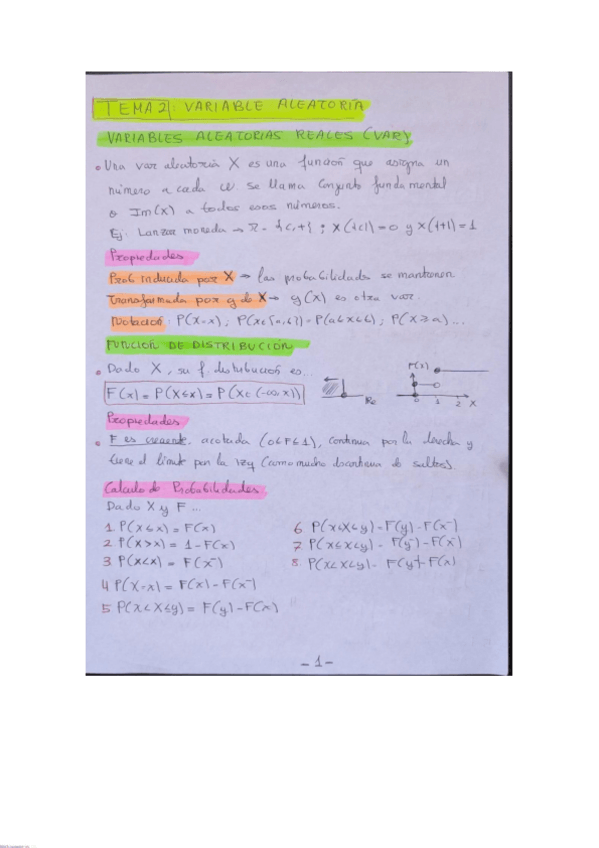 TEMA 2: VARIABLE ALEATORIA
VARIABLES ALEATORIAS REALES (VAR)
• Una var aleatoria X es una función que asigna un
número a cada ω se llama conjunto fundamental
o Im(X) a todos esos números.
Ej: Lanzar moneda → Ω = {c,+} ; X({c})=0 y X({+})=1
Propiedades
Prob inducida por X → las probabilidades se mantienen
Transformada por g de X → g(X) es otra var.
Notación: P(X=x) ; P(X∈[a,b])=P(a≤X≤b) ; P(X≥a)...
FUNCIÓN DE DISTRIBUCIÓN
• Dado X, su f. distribución es...
F(x)=P(X≤x)=P(X∈(-∞,x])
F(x)
0 1 2 X
Propiedades
• F es creciente, acotada (0≤F≤1), continua por la derecha y
tiene el límite por la izq (como mucho discontinua de saltos)
Calculo de Probabilidades
Dado X y F ...
1. P(X≤x) = F(x)
2. P(X>x) = 1-F(x)
3. P(X<x) = F(x⁻)
4. P(X=x) = F(x)-F(x⁻)
5. P(x<X≤y) = F(y)-F(x)
6. P(x≤X≤y) = F(y)-F(x⁻)
7. P(x≤X<y) = F(y⁻)-F(x⁻)
8. P(x<X<y) = F(y⁻)-F(x)
-1-